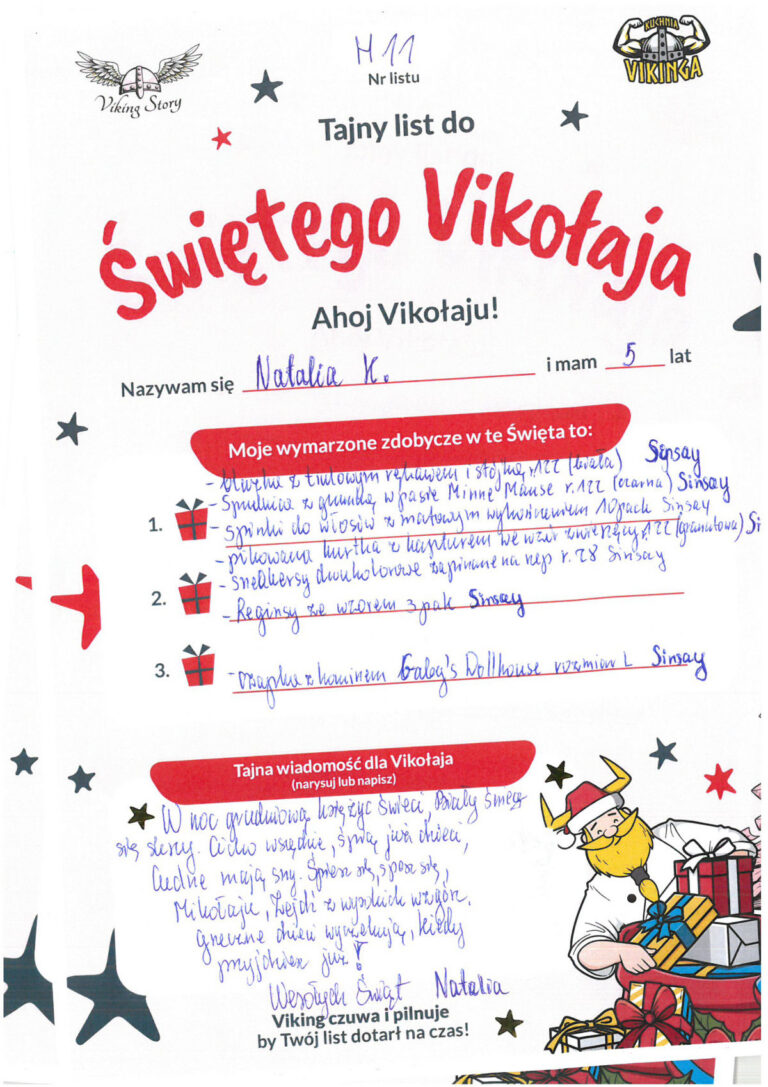 Viking Story
H 11
Nr listu
KUCHNIA
VIKINGA
Tajny list do
Świętego Vikołaja
Ahoj Vikołaju!
Nazywam się Natalia K. i mam 5 lat
Moje wymarzone zdobycze w te Święta to:
- bluzka z tiulowym rękawem i stójką r.122 (biała) Sinsay
- Spódnica z gumką w pasie Minnie Mause r.122 (czarna) Sinsay
1. - spinki do włosów z matowym wykończeniem 10pack Sinsay
- pikowana kurtka z kapturem we wzór zwierzęcy r.122 (granatowa) Si
- Sneakersy dwukolorowe zapinane na rzep r.28 Sinsay
2. - Reginsy ze wzorem 3pak Sinsay
3. - czapka z kominem Gabby's Dollhouse rozmiar L Sinsay
Tajna wiadomość dla Vikołaja
(narysuj lub napisz)
W noc grudniową księżyc świeci, Biały śnieg
się skrzy. Cicho wszędzie, śpią już dzieci,
Cudne mają sny. Śpiesz się, śpiesz się,
Mikołaju, Zejdź z wysokich wzgórz,
grzeczne dzieci wyczekują, kiedy
przyjdziesz już!
Wesołych Świąt Natalia
Viking czuwa i pilnuje
by Twój list dotarł na czas!